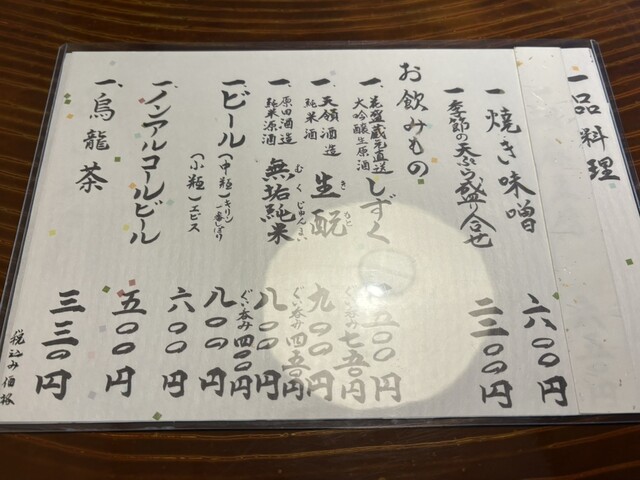 一品料理
一 焼き味噌 六〇〇円
一 季節の天ぷら盛り合せ 二二〇〇円
お飲みもの
一、蔵元直送
大吟醸生原酒
しずく 五〇〇円
ぐい呑み 七五〇円
一、天領酒造
純米酒
生酛 九〇〇円
き もと
ぐい呑み 四五〇円
一、原田酒造
純米原酒
無垢純米 八〇〇円
むくじゅんまい
ぐい呑み 四〇〇円
一、ビール(中瓶)キリン一番しぼり 八〇〇円
(小瓶)エビス 六〇〇円
一、ノンアルコールビール 五〇〇円
一、烏龍茶 三三〇円
税込み価格